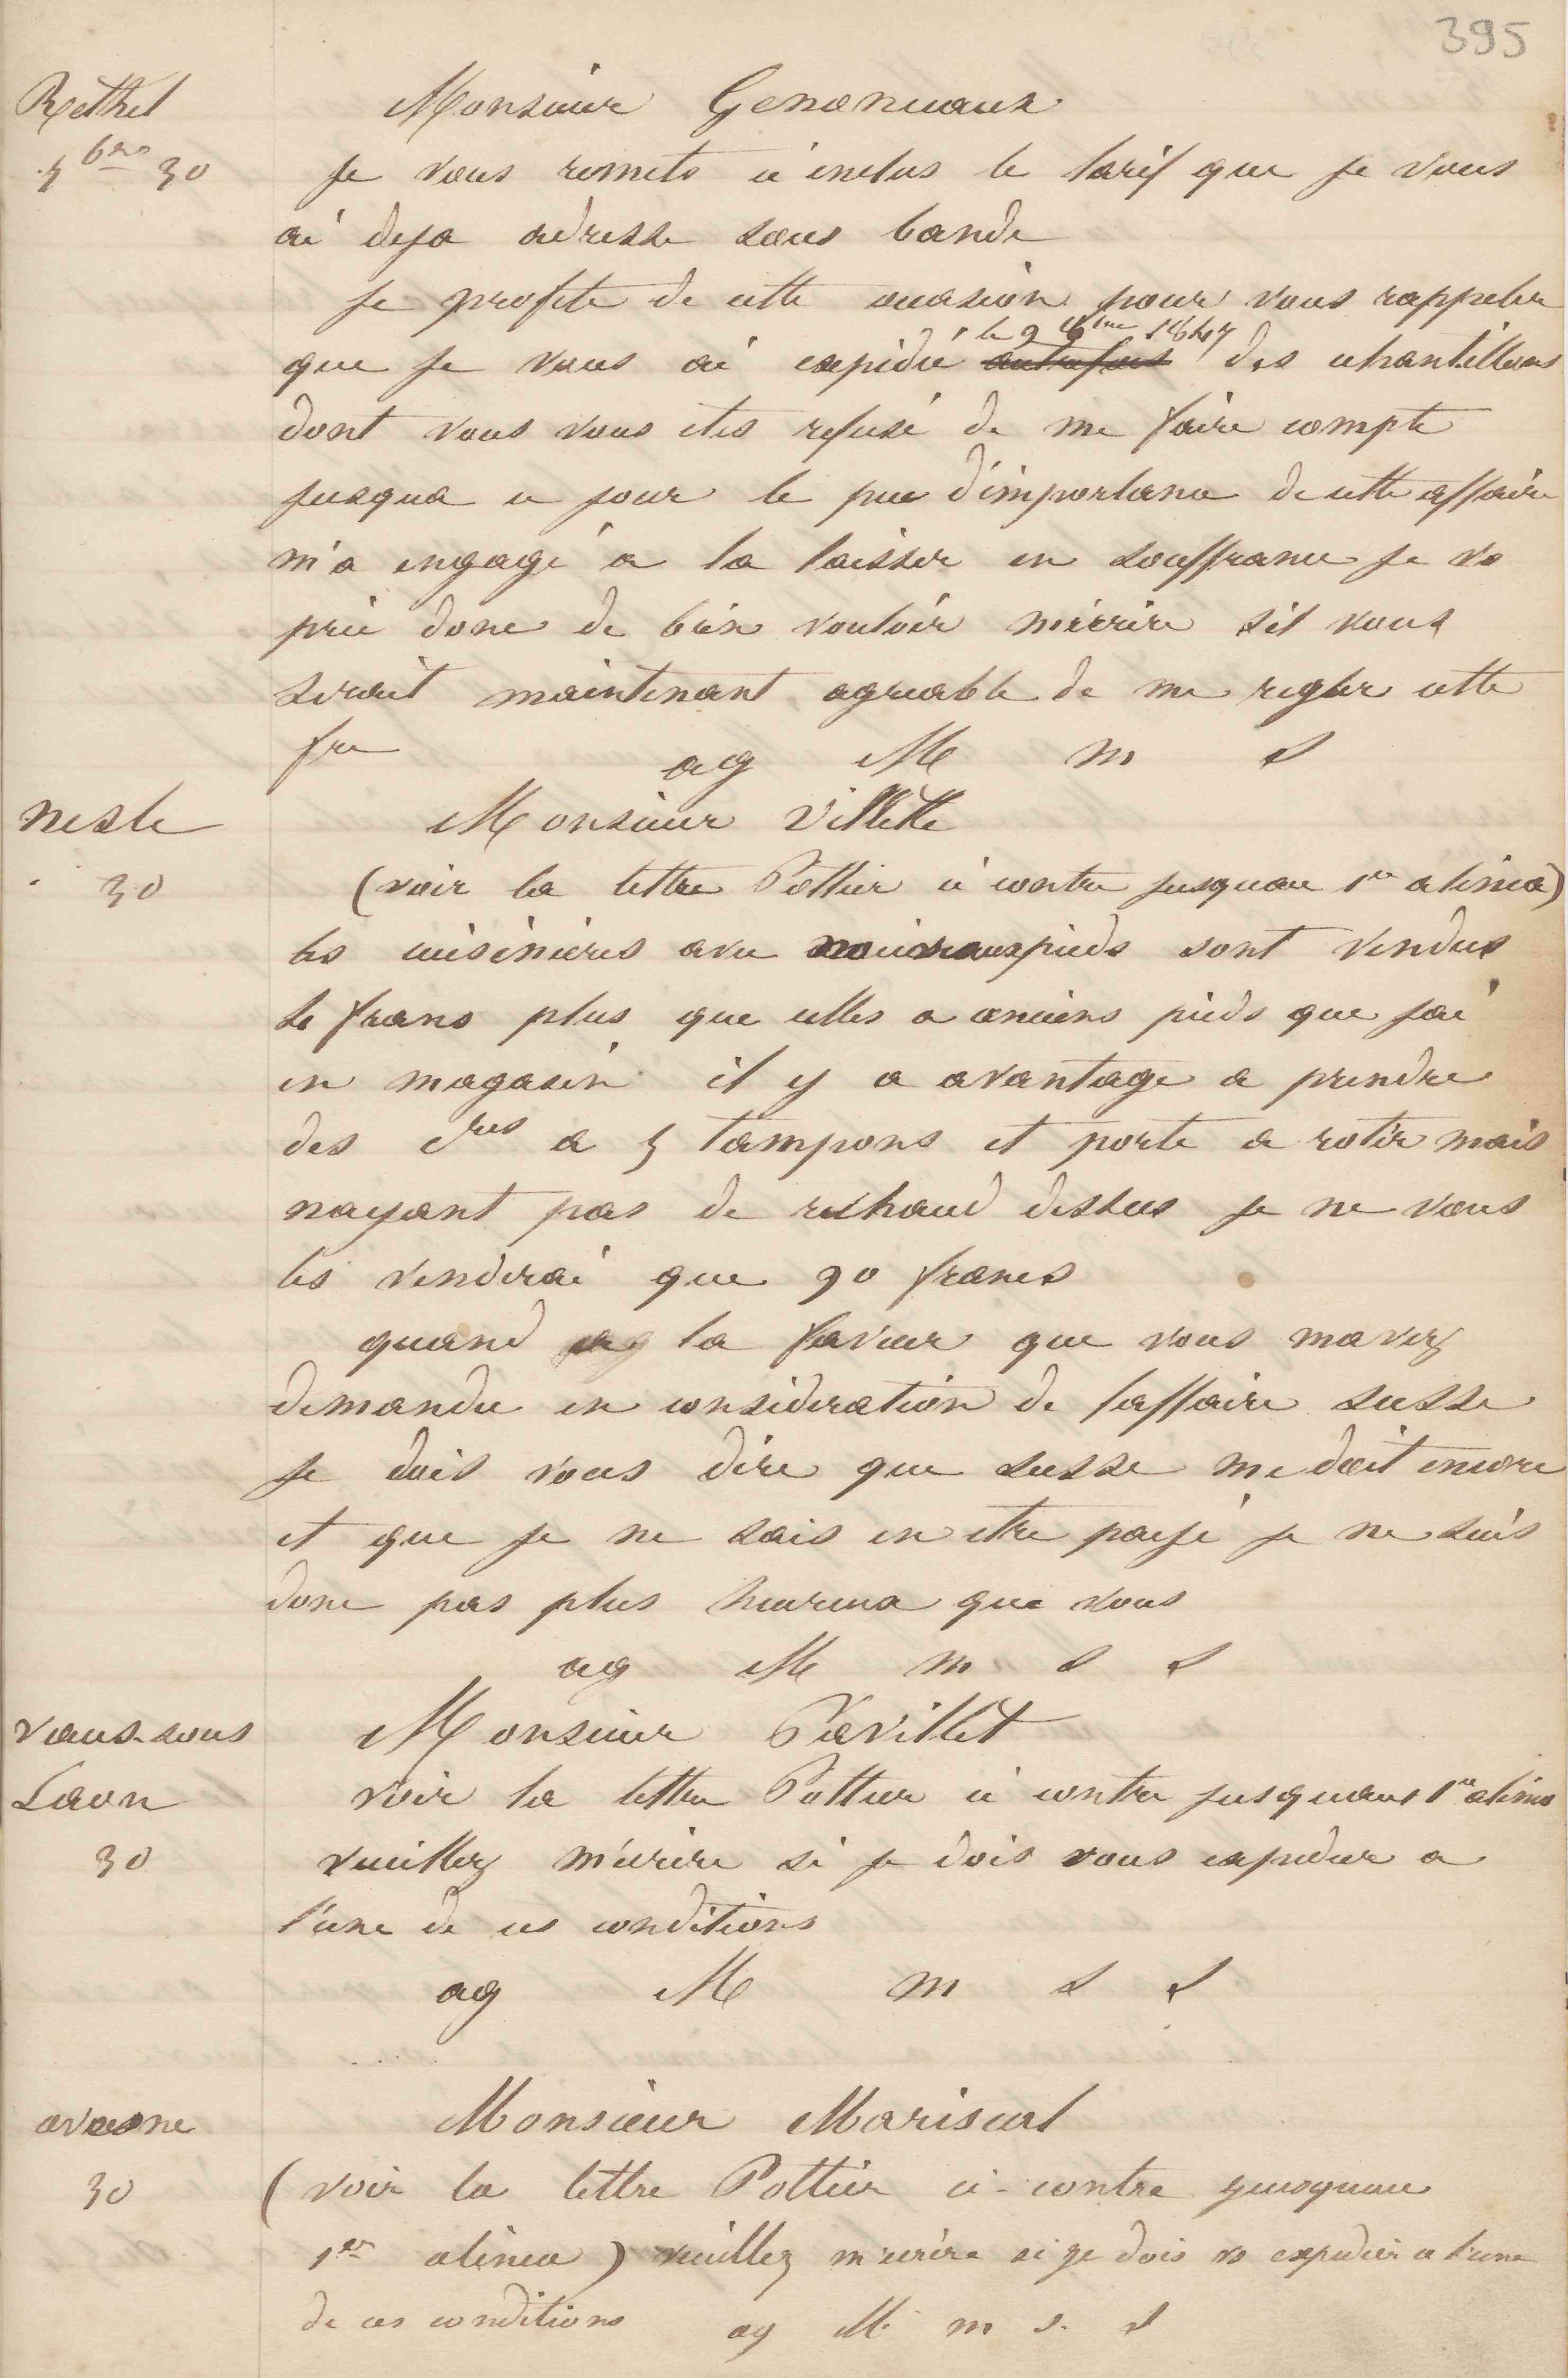 395
Rethel
Monsieur Genonceaux
5 bre 30
Je vous remets ci inclus le tarif que je vous
ai deja adresse sous bande
Je profite de cette occasion pour vous rappeler
le 9 bre 1847
que je vous ai expedié autrefois des echantillons
dont vous vous etes refusé de me faire compte
jusqua ce jour le peu d'importance de cette affaire
m'a engagé a la laisser en souffrance je vs
prie donc de bien vouloir m'ecrire sil vous
serait maintenant agreable de me regler cette
fre
ag M m s
nesle
Monsieur Villette
30
(voir la lettre Pottier ci contre jusquau 1er alinea)
les cuisinieres avec nouveaux pieds sont vendus
francs plus que celles a anciens pieds que jai
en magasin il y a avantage a prendre
des cres a 5 tampons et porte a rotir mais
nayant pas de rechaud dessus je ne vous
les venderai que 90 francs
quand la faveur que vous mavez
demandee en consideration de laffaire susse
je dois vous dire que susse me doit encore
et que je ne sais en etre payé je ne suis
donc pas plus heureux que vous
ag M m s s
vaux-sous
Monsieur Pavillet
Laon
voir la lettre Pottier ci contre jusquaux 1er alinea
30
veuillez m'ecrire si je dois vous expedier a
l'une de ces conditions
ag M m s s
avesne
Monsieur Mariscal
30
(voir la lettre Pottier ci-contre jusquau
1er alinea) veuillez m'ecrire si je dois vs expedier a l'une
de ces conditions ag M m s. s